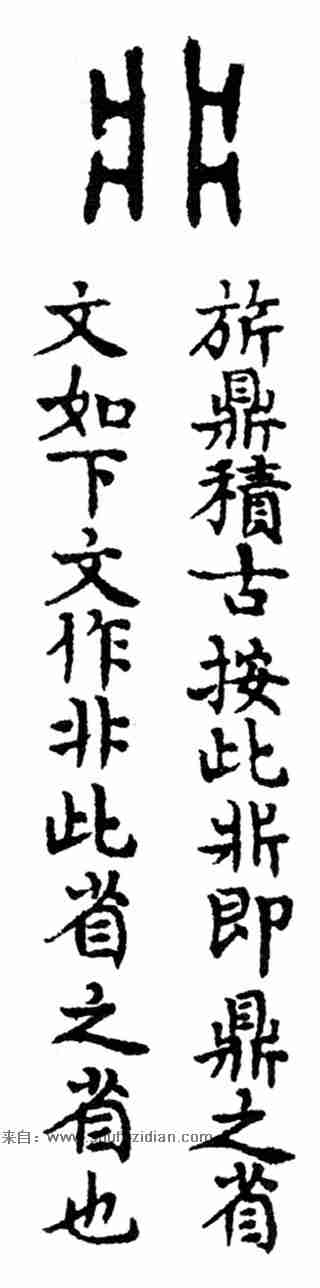 旂鼎積古按此𣂑即鼎之省
文如下文作非此省之省也
来自：www.shufazidian.com